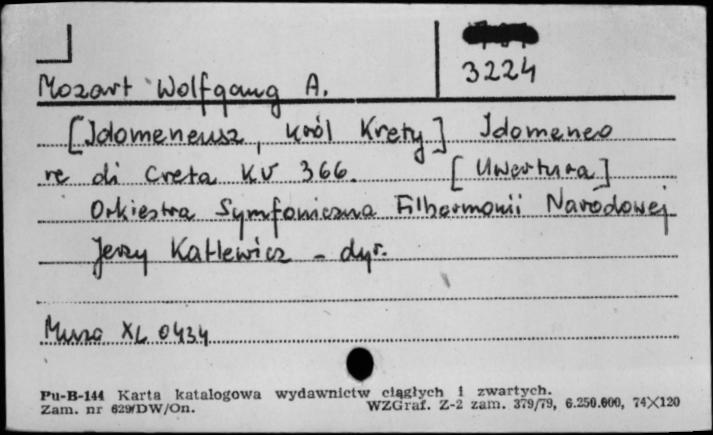 3224
Mozart Wolfgang A.
[Idomeneusz, król Krety] Idomeneo
re di Creta KV 366. [Uwertura]
Orkiestra Symfoniczna Filharmonii Narodowej
Jerzy Katlewicz – dyr.
Muza XL 0434
Pu-B-144 Karta katalogowa wydawnictw ciągłych i zwartych.
Zam. nr 629/DW/On. WZGraf. Z-2 zam. 379/79, 6.250.000, 74×120